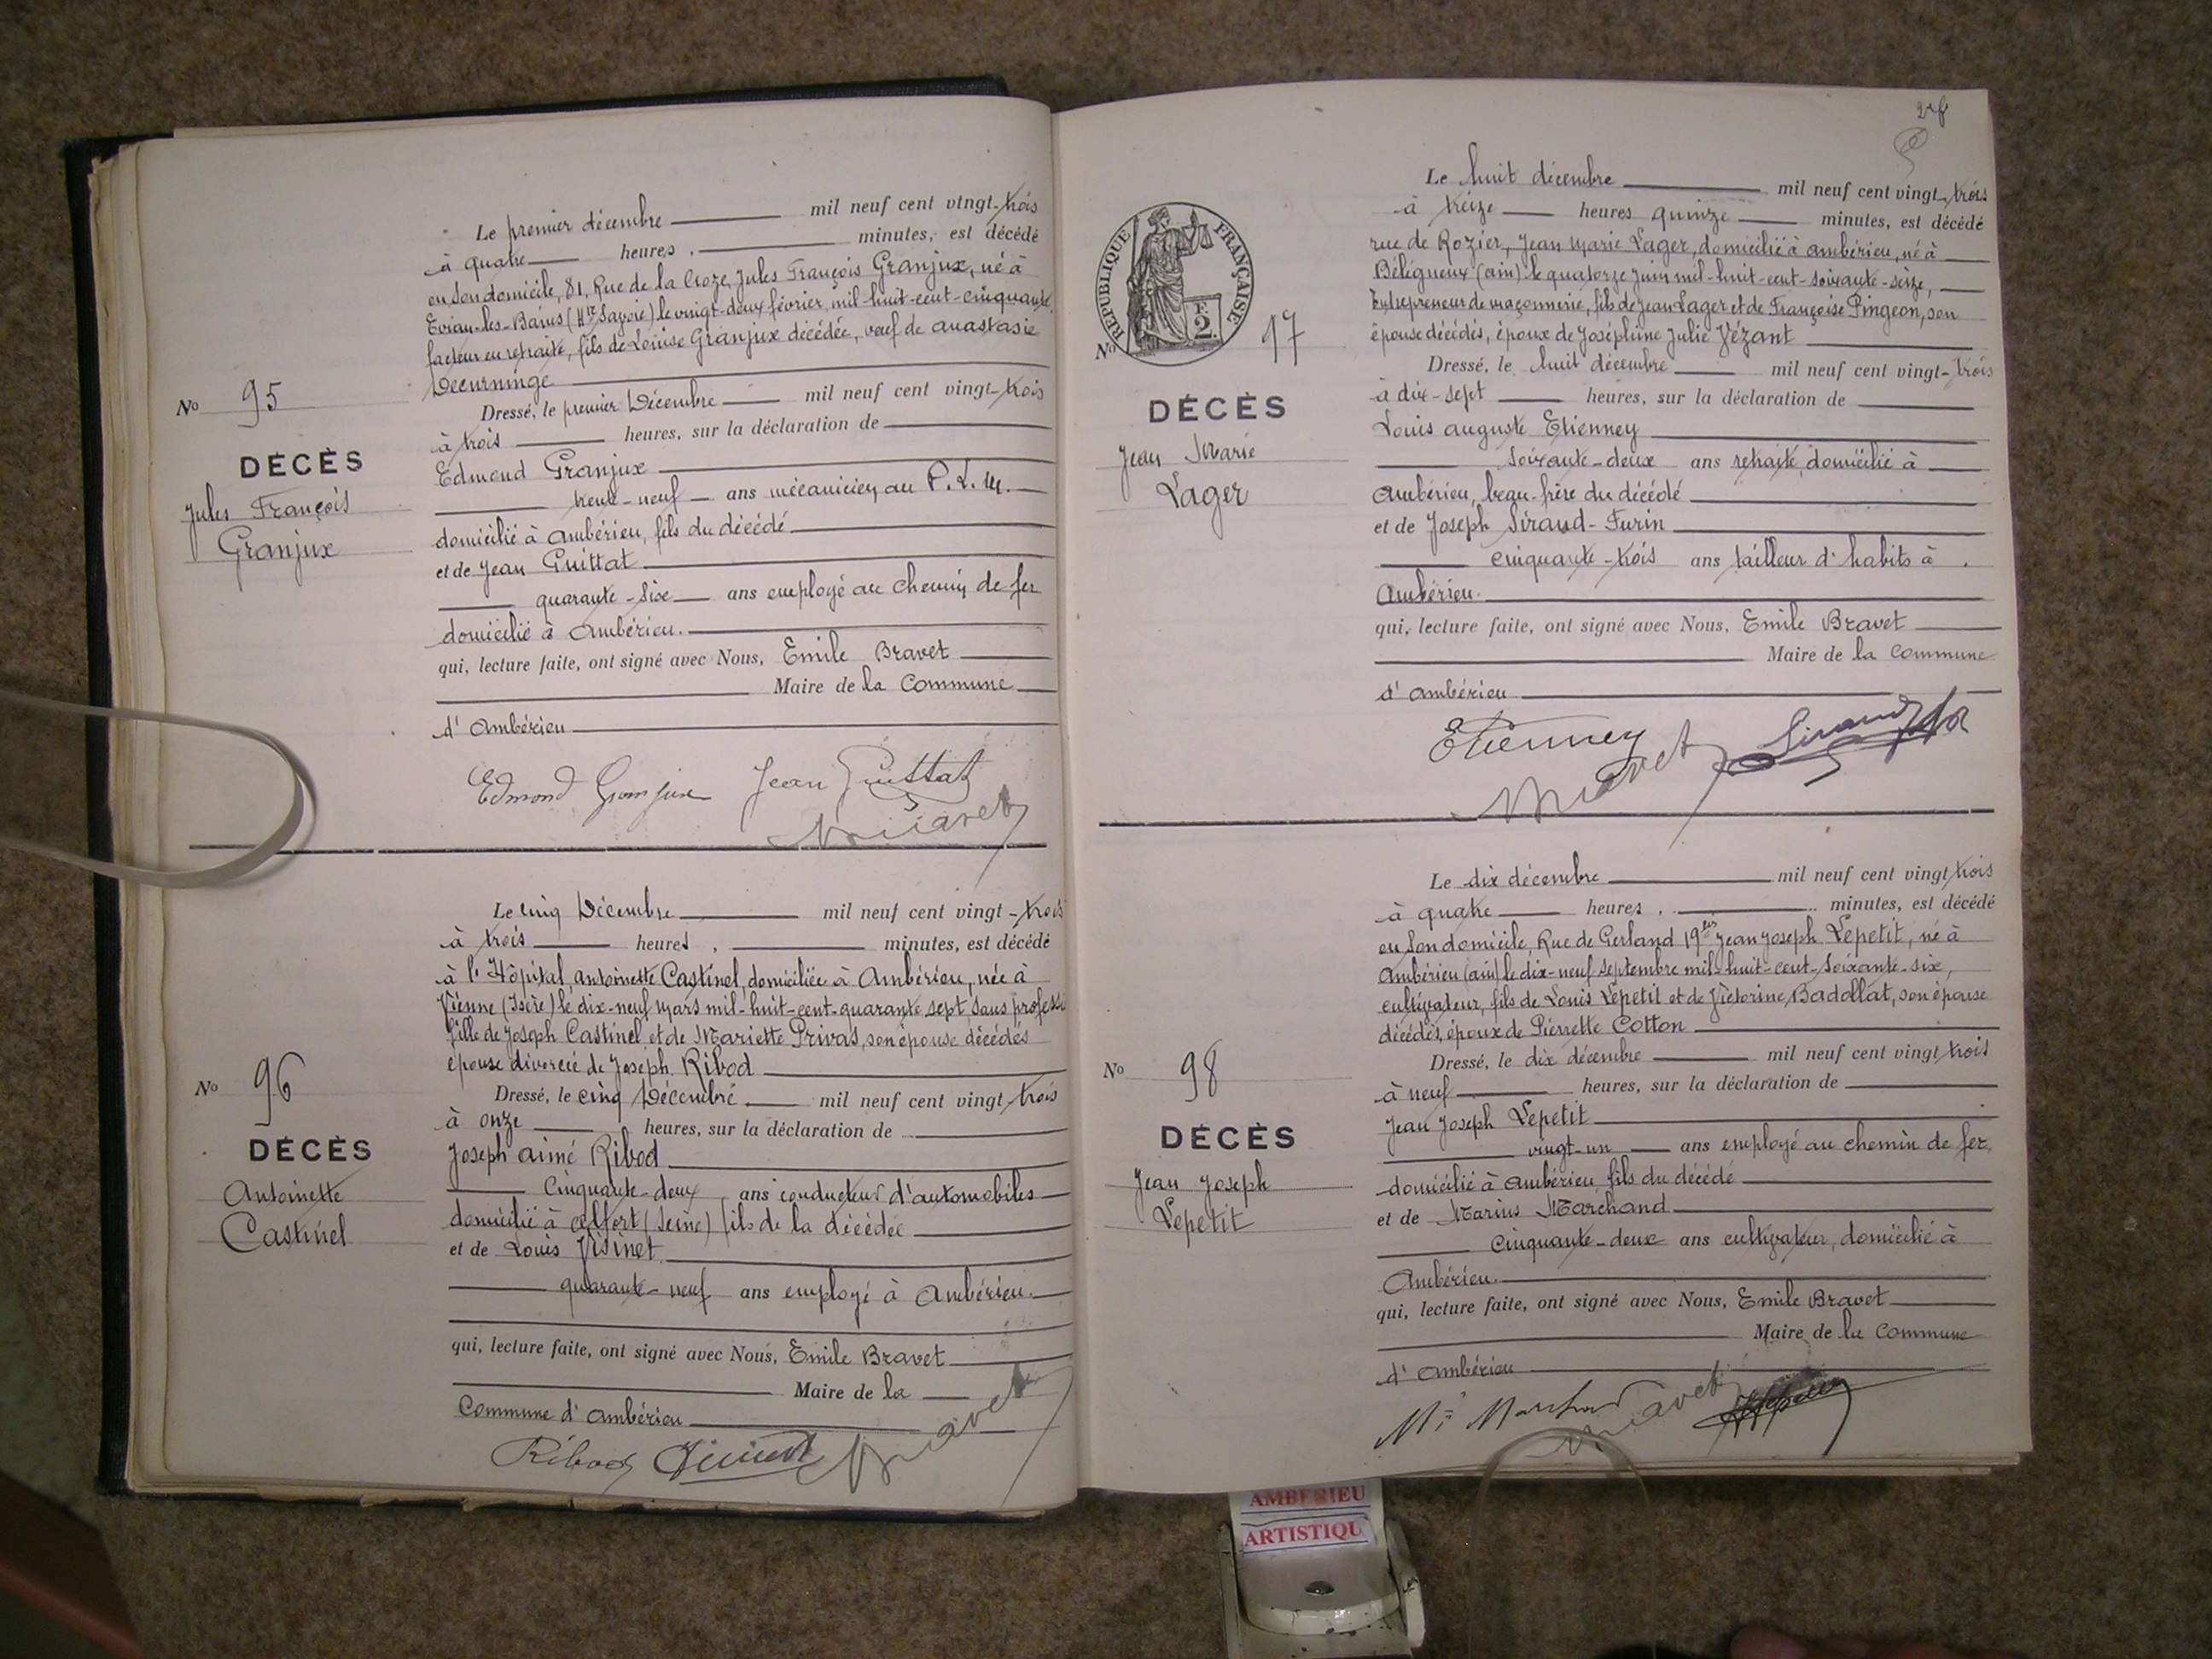 Le premier décembre mil neuf cent vingt-trois
à quatre heures, minutes, est décédé
en son domicile, 81, Rue de la Croze, Jules François Granjux, né à
Evian-les-Bains (Hte Savoie) le vingt-deux février mil-huit-cent-cinquante,
facteur en retraite, fils de Louise Granjux décédée, veuf de anastasie
Decurninge
No 95
DÉCÈS
Jules François
Granjux
Dressé, le premier Décembre mil neuf cent vingt-trois
à trois heures, sur la déclaration de
Edmond Granjux
trente-neuf ans mécanicien au P.L.M.
domicilié à Ambérieu, fils du décédé
et de Jean Guittat
quarante-six ans employé au chemin de fer
domicilié à Ambérieu.
qui, lecture faite, ont signé avec Nous, Emile Bravet
Maire de la Commune
d'Ambérieu
Edmond Granjux Jean Guittat
Bravet
Le cinq Décembre mil neuf cent vingt-trois
à trois heures, minutes, est décédé
à l'Hôpital, antoinette Castinel, domiciliée à Ambérieu, née à
Vienne (Isère) le dix-neuf Mars mil-huit-cent-quarante sept, sans profess
fille de Joseph Castinel et de Mariette Privas, son épouse décédés
épouse divorcée de Joseph Ribod
No 96
DÉCÈS
Antoinette
Castinel
Dressé, le cinq Décembre mil neuf cent vingt trois
à onze heures, sur la déclaration de
Joseph aimé Ribod
Cinquante-deux ans conducteur d'automobiles
domicilié à (Seine) fils de la décédée
et de Louis Visinet
quarante-neuf ans employé à Ambérieu.
qui, lecture faite, ont signé avec Nous, Emile Bravet
Maire de la
Commune d'Ambérieu
Ribod Visinet Bravet
Le huit décembre mil neuf cent vingt-trois
à treize heures quinze minutes, est décédé
rue de Rozier, Jean Marie Lager, domicilié à ambérieu, né à
Béligneux (ain) le quatorze juin mil-huit-cent-soixante-seize,
Entrepreneur de maçonnerie, fils de Jean Lager et de Françoise Pingeon, son
épouse décédés, époux de Joséphine Julie Vézant
RÉPUBLIQUE FRANÇAISE
F.
2.
No 97
DÉCÈS
Jean Marie
Lager
Dressé, le huit décembre mil neuf cent vingt-trois
à dix-sept heures, sur la déclaration de
Louis auguste Etienney
soixante-deux ans retraité, domicilié à
Ambérieu, beau-frère du décédé
et de Joseph Siraud-Furin
cinquante-trois ans tailleur d'habits à
Ambérieu.
qui, lecture faite, ont signé avec Nous, Emile Bravet
Maire de la Commune
d'Ambérieu
Etienney Bravet Siraud
Le dix décembre mil neuf cent vingt trois
à quatre heures, minutes, est décédé
en son domicile, Rue de Gerland 19bis Jean Joseph Lepetit, né à
Ambérieu (ain) le dix-neuf septembre mil-huit-cent-soixante-six,
cultivateur, fils de Louis Lepetit et de Victorine Badollat, son épouse
décédés, époux de Pierrette Cotton
No 98
DÉCÈS
Jean Joseph
Lepetit
Dressé, le dix décembre mil neuf cent vingt trois
à neuf heures, sur la déclaration de
Jean Joseph Lepetit
vingt-un ans employé au chemin de fer,
domicilié à Ambérieu fils du décédé
et de Marius Marchand
cinquante-deux ans cultivateur, domicilié à
Ambérieu.
qui, lecture faite, ont signé avec Nous, Emile Bravet
Maire de la Commune
d'Ambérieu
Marchand Bravet Lepetit
AMBERIEU
ARTISTIQU